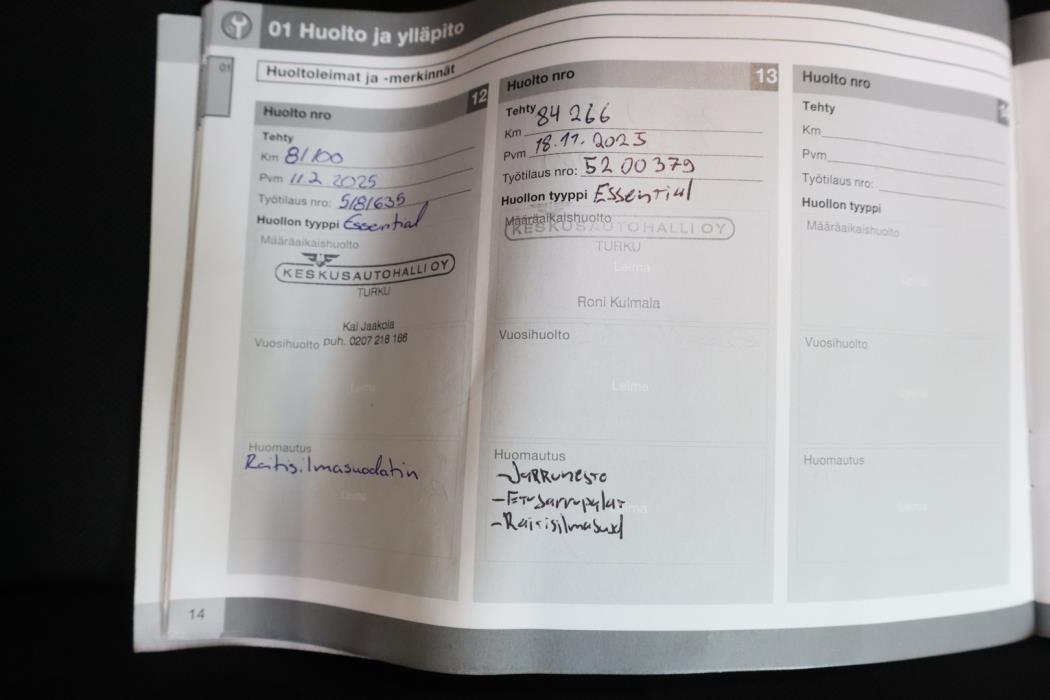 01 Huolto ja ylläpito
01
Huoltoleimat ja -merkinnät
12
Huolto nro
Tehty
Km 81100
Pvm 11.2 2025
Työtilaus nro: 5181635
Huollon tyyppi Essential
Määräaikaishuolto
KESKUSAUTOHALLI OY
TURKU
Kai Jaakola
puh. 0207 218 166
Vuosihuolto
Leima
Huomautus
Raitisilmasuodatin
Leima
13
Huolto nro
Tehty
Km 84 266
Pvm 18.11.2025
Työtilaus nro: 52 00379
Huollon tyyppi Essential
Määräaikaishuolto
KESKUSAUTOHALLI OY
TURKU
Leima
Roni Kulmala
Vuosihuolto
Leima
Huomautus
-Jarruneste
-Etujarrupalat
-Raitisilmasuod
Huolto nro
Tehty
Km
Pvm
Työtilaus nro:
Huollon tyyppi
Määräaikaishuolto
Leima
Vuosihuolto
Leima
Huomautus
Leima
14